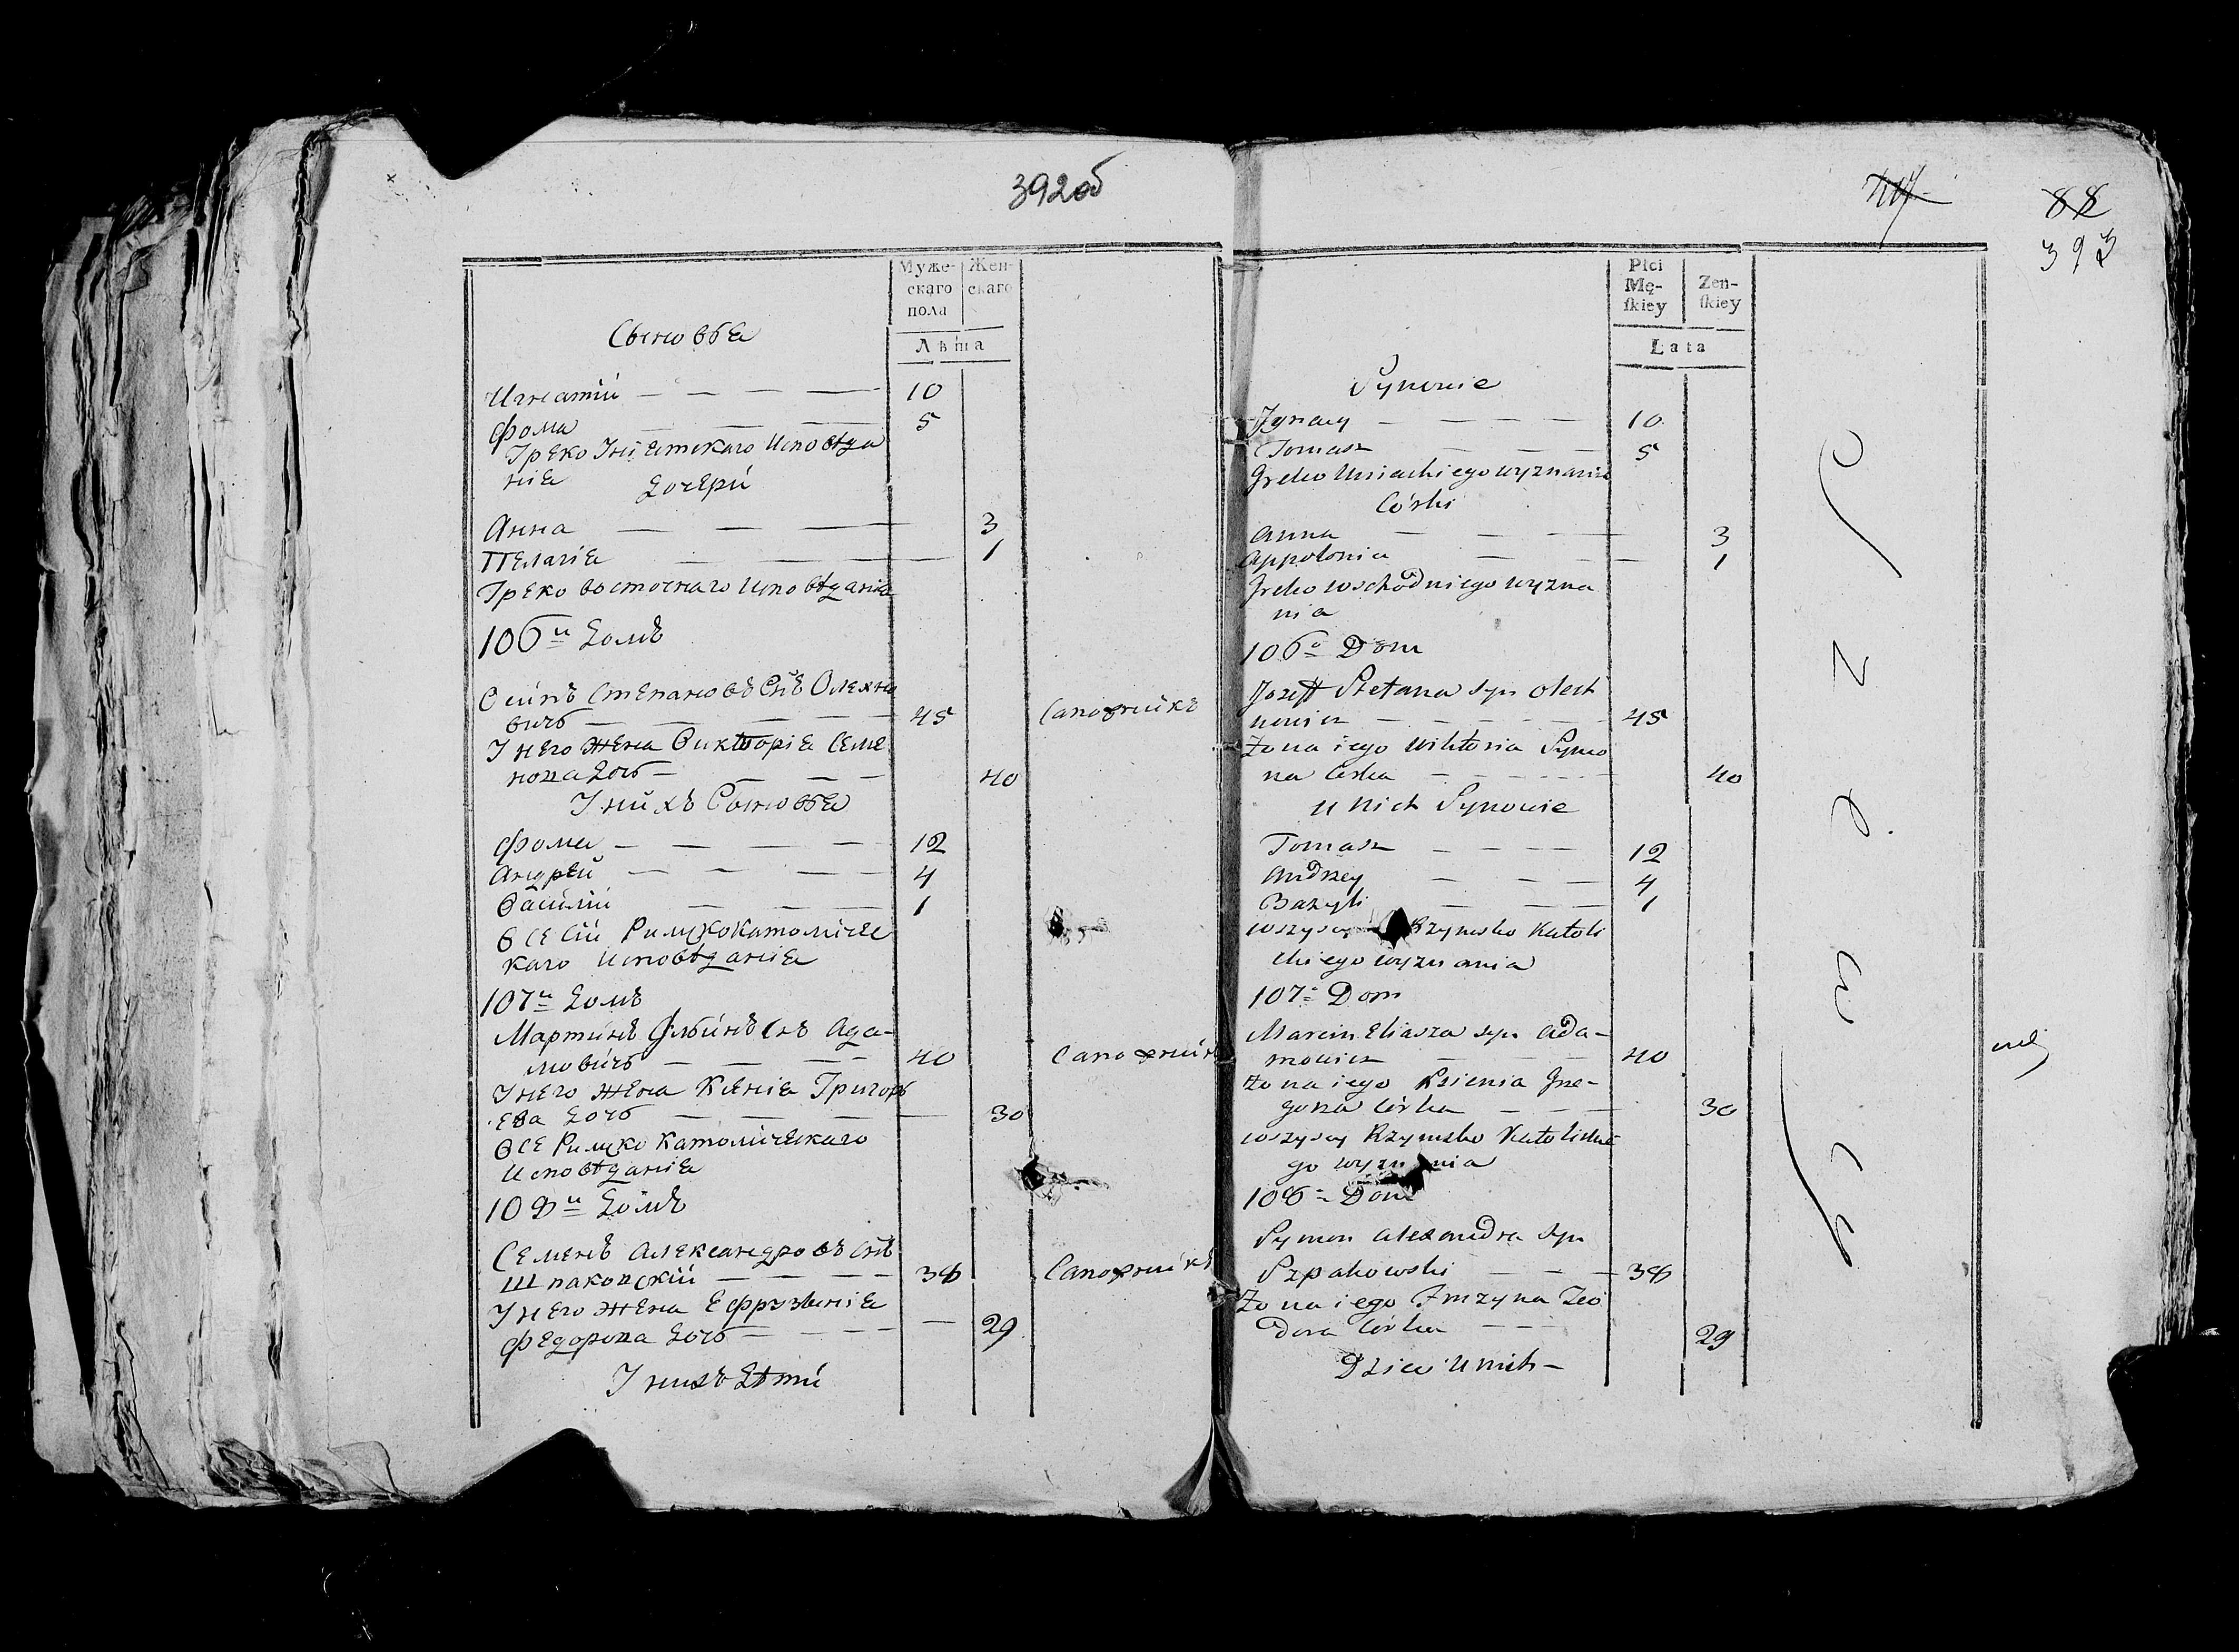 392об
Муже-
скаго
пола
Жен-
скаго
Лѣта
Сыновъѣ
Игнатiй — — — — 10
Фома — — — 5
Греко Унiятскаго Исповѣда
нiя
Дочери
Анна — — — 3
Пелагiя — — — 1
Греко восточнаго Исповѣданiя
106й Домъ
Осипъ Степановъ Снъ Олехно
вичь — — — — 45 Сапожникъ
У него жена Викторiя Семе
нова дочь — — — 40
У нихъ Сыновья
Фома — — — — 12
Андрей — — — — 4
Васили — — — 1
Все Римскокатоличес
каго Исповѣданiя
107й Домъ
Мартинъ Снъ Ада-
мовичь — — — 40 Сапожникъ
У него жена Ксенiя Григорь
ева дочь — — — — 30
Все Римско Католическаго
Исповѣданiя
108й Домъ
Семенъ Александровъ Снъ
Шпаковскiй — — — — 38 Сапожникъ
У него жена
Федорова дочь — — — — 29
У нихъ Дѣти
88
393
Płci
Mę-
ſkiey
Zen-
ſkiey
Lata
Synowie
Jgnacy — — — — 10
Tomasz — — — 5
Greko Uniackiego wyznania
Córki
Anna — — — 3
Appolonia — — — 1
Greko wschodniego wyzna
nia
106o Dom
Jozeff Stefana syn Olech
nowicz — — — — 45
Zona iego Wiktoria Symo
na Corka — — — 40
u nich Synowie
Tomasz — — — — 12
Andrzey — — — 4
Bazyli — — — 1
wszyscy Rzymsko Katoli
ckiego wyznania
107o Dom
Marcin Eliasza syn Ada-
mowicz — — — 40
Zona iego Ksienia Grze-
gorza Córka — — — 30
wszyscy Rzymsko Katolickie
go wyznania
108o Dom
Symon Alexandra Syn
Szpakowski — — — 38
Zona iego Teo
dora Córka — — — 29
Dzieci u nich —